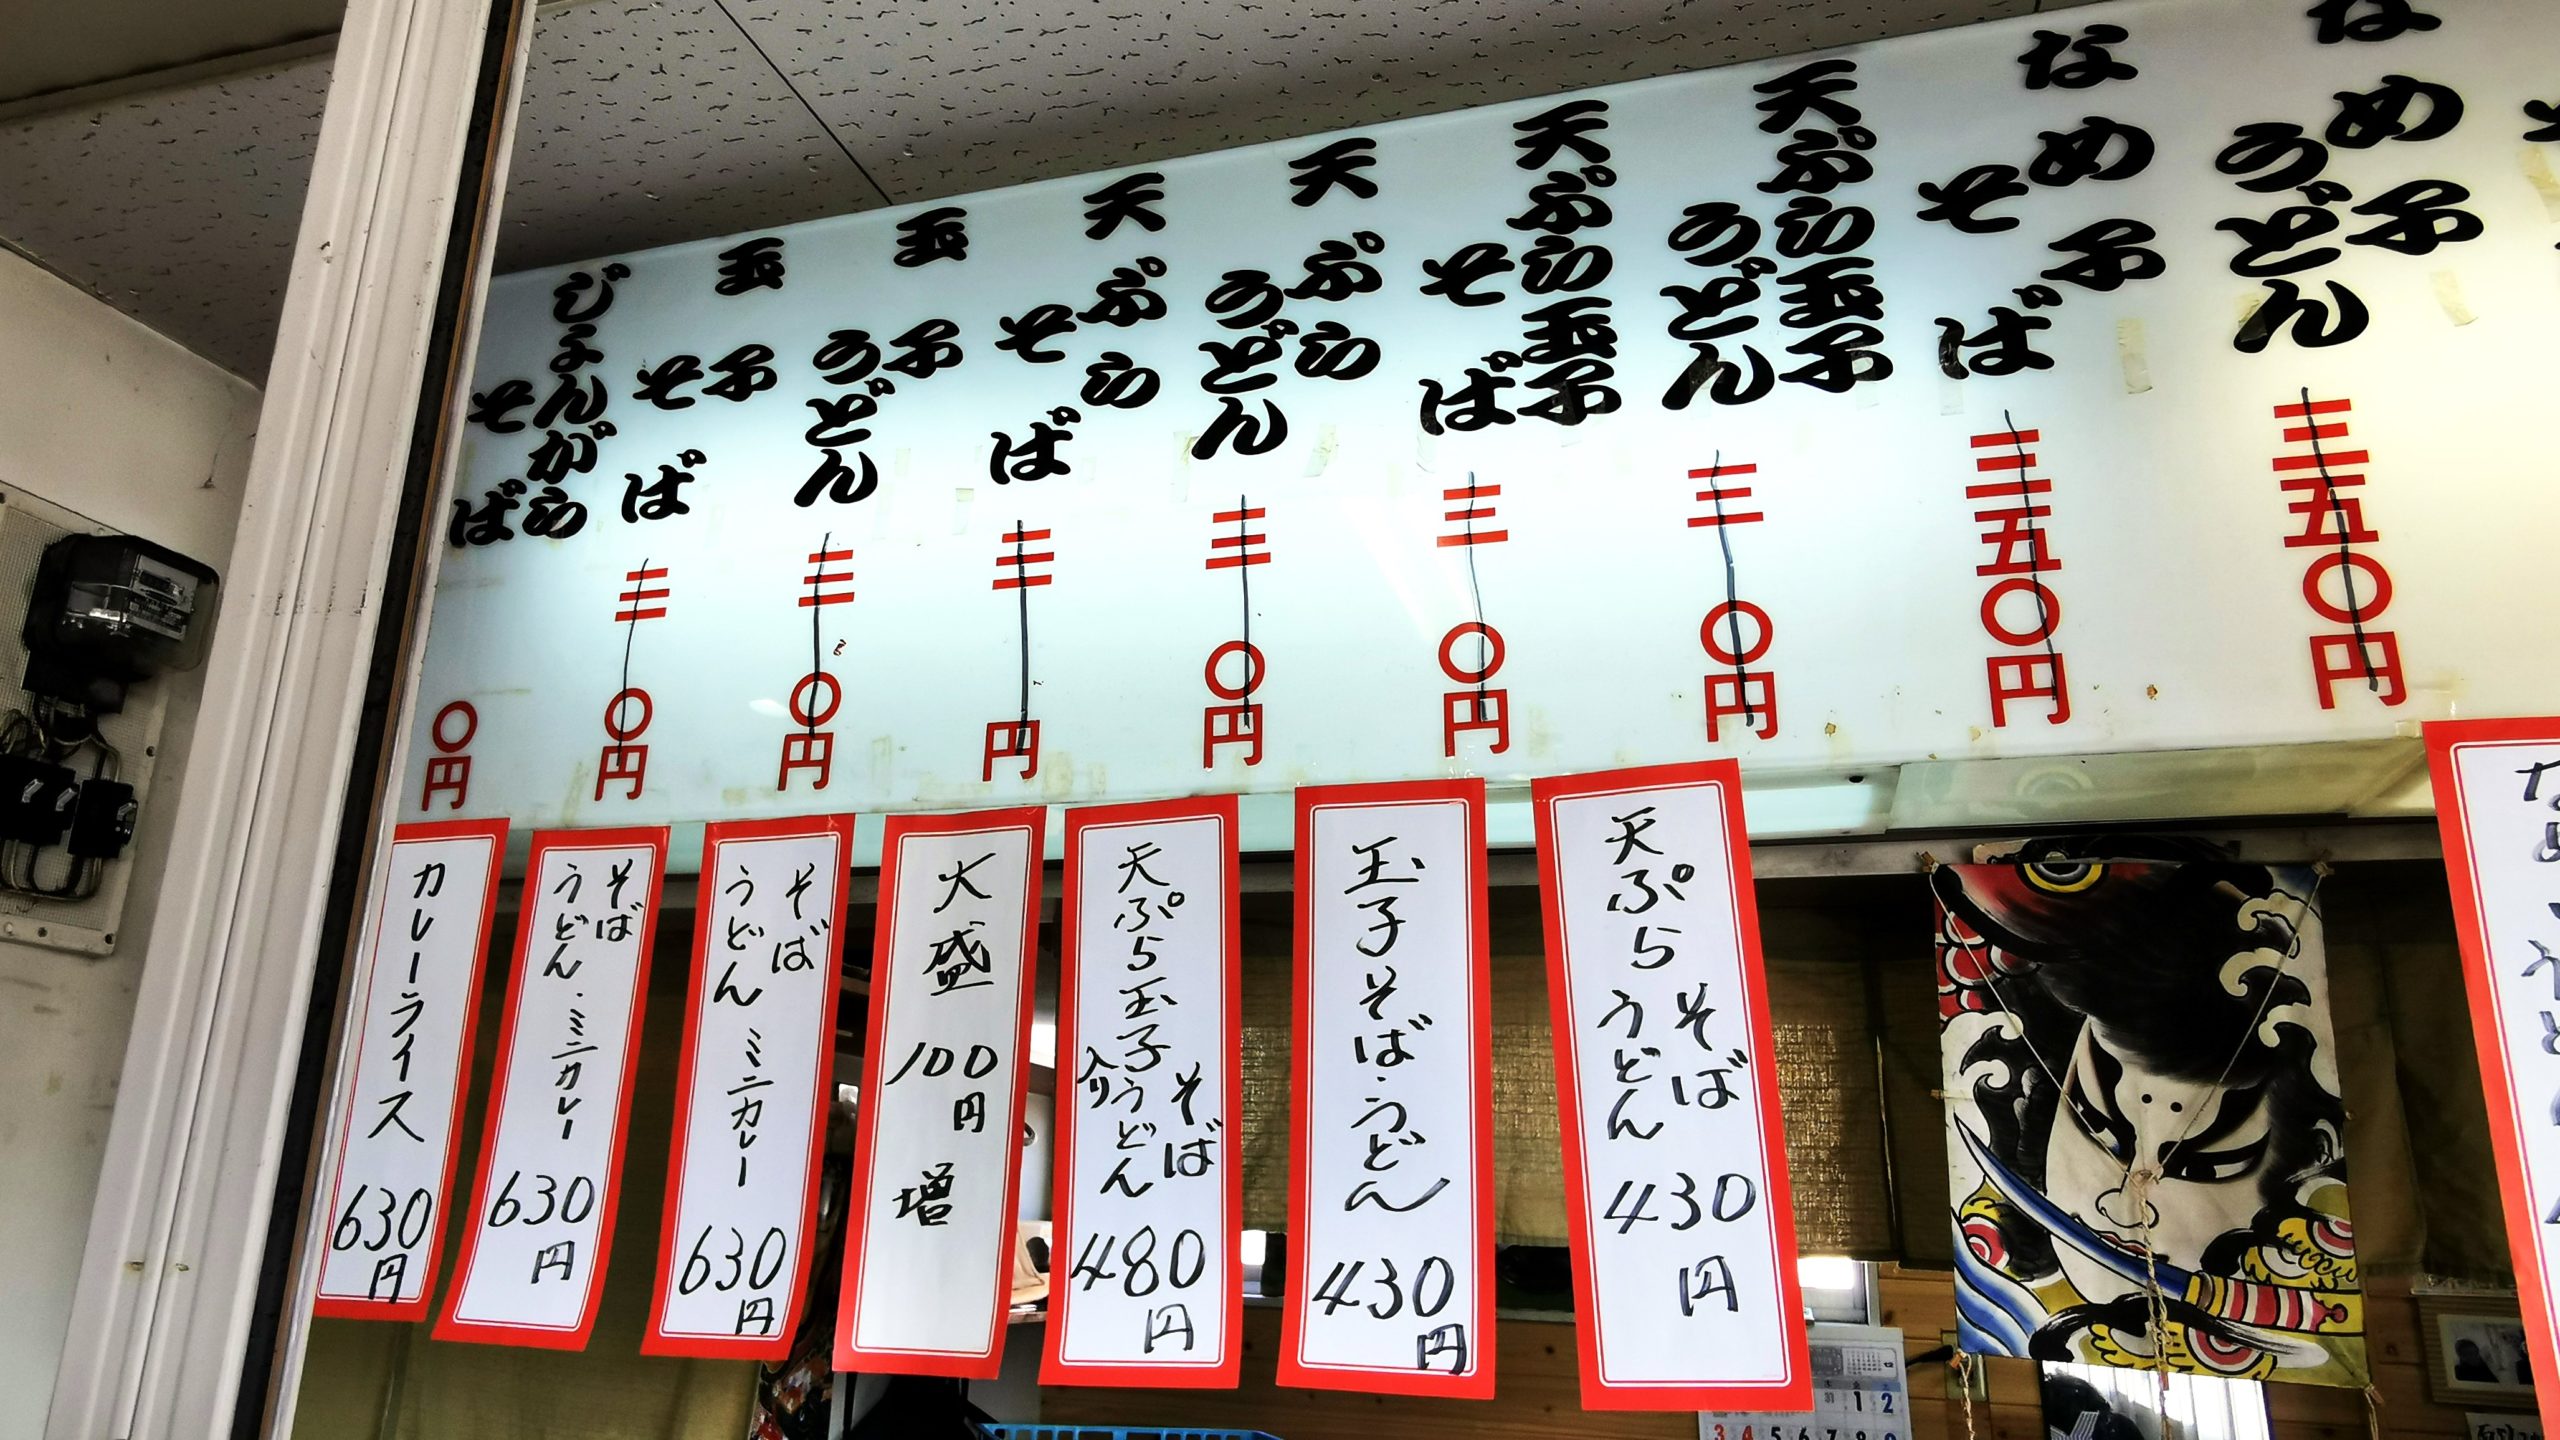 なめ子うどん
三五〇円
なめ子そば
三五〇円
天ぷら玉子うどん
三 〇円
天ぷら玉子そば
三 〇円
天ぷらうどん
三 〇円
天ぷらそば
三 円
玉子うどん
三 〇円
玉子そば
三 〇円
じょんがらそば
〇円
天ぷらそば
うどん
430円
玉子そば・うどん
430円
天ぷら玉子入り
そば
うどん
480円
大盛
100円
増
そば
うどん
ミニカレー
630円
そば
うどん・ミニカレー
630円
カレーライス
630円
31 1 2
3 4 5 6 7 8 9